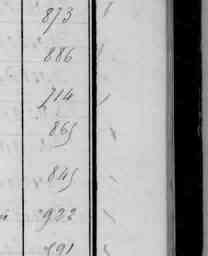 873
886
714
865
845
922
591